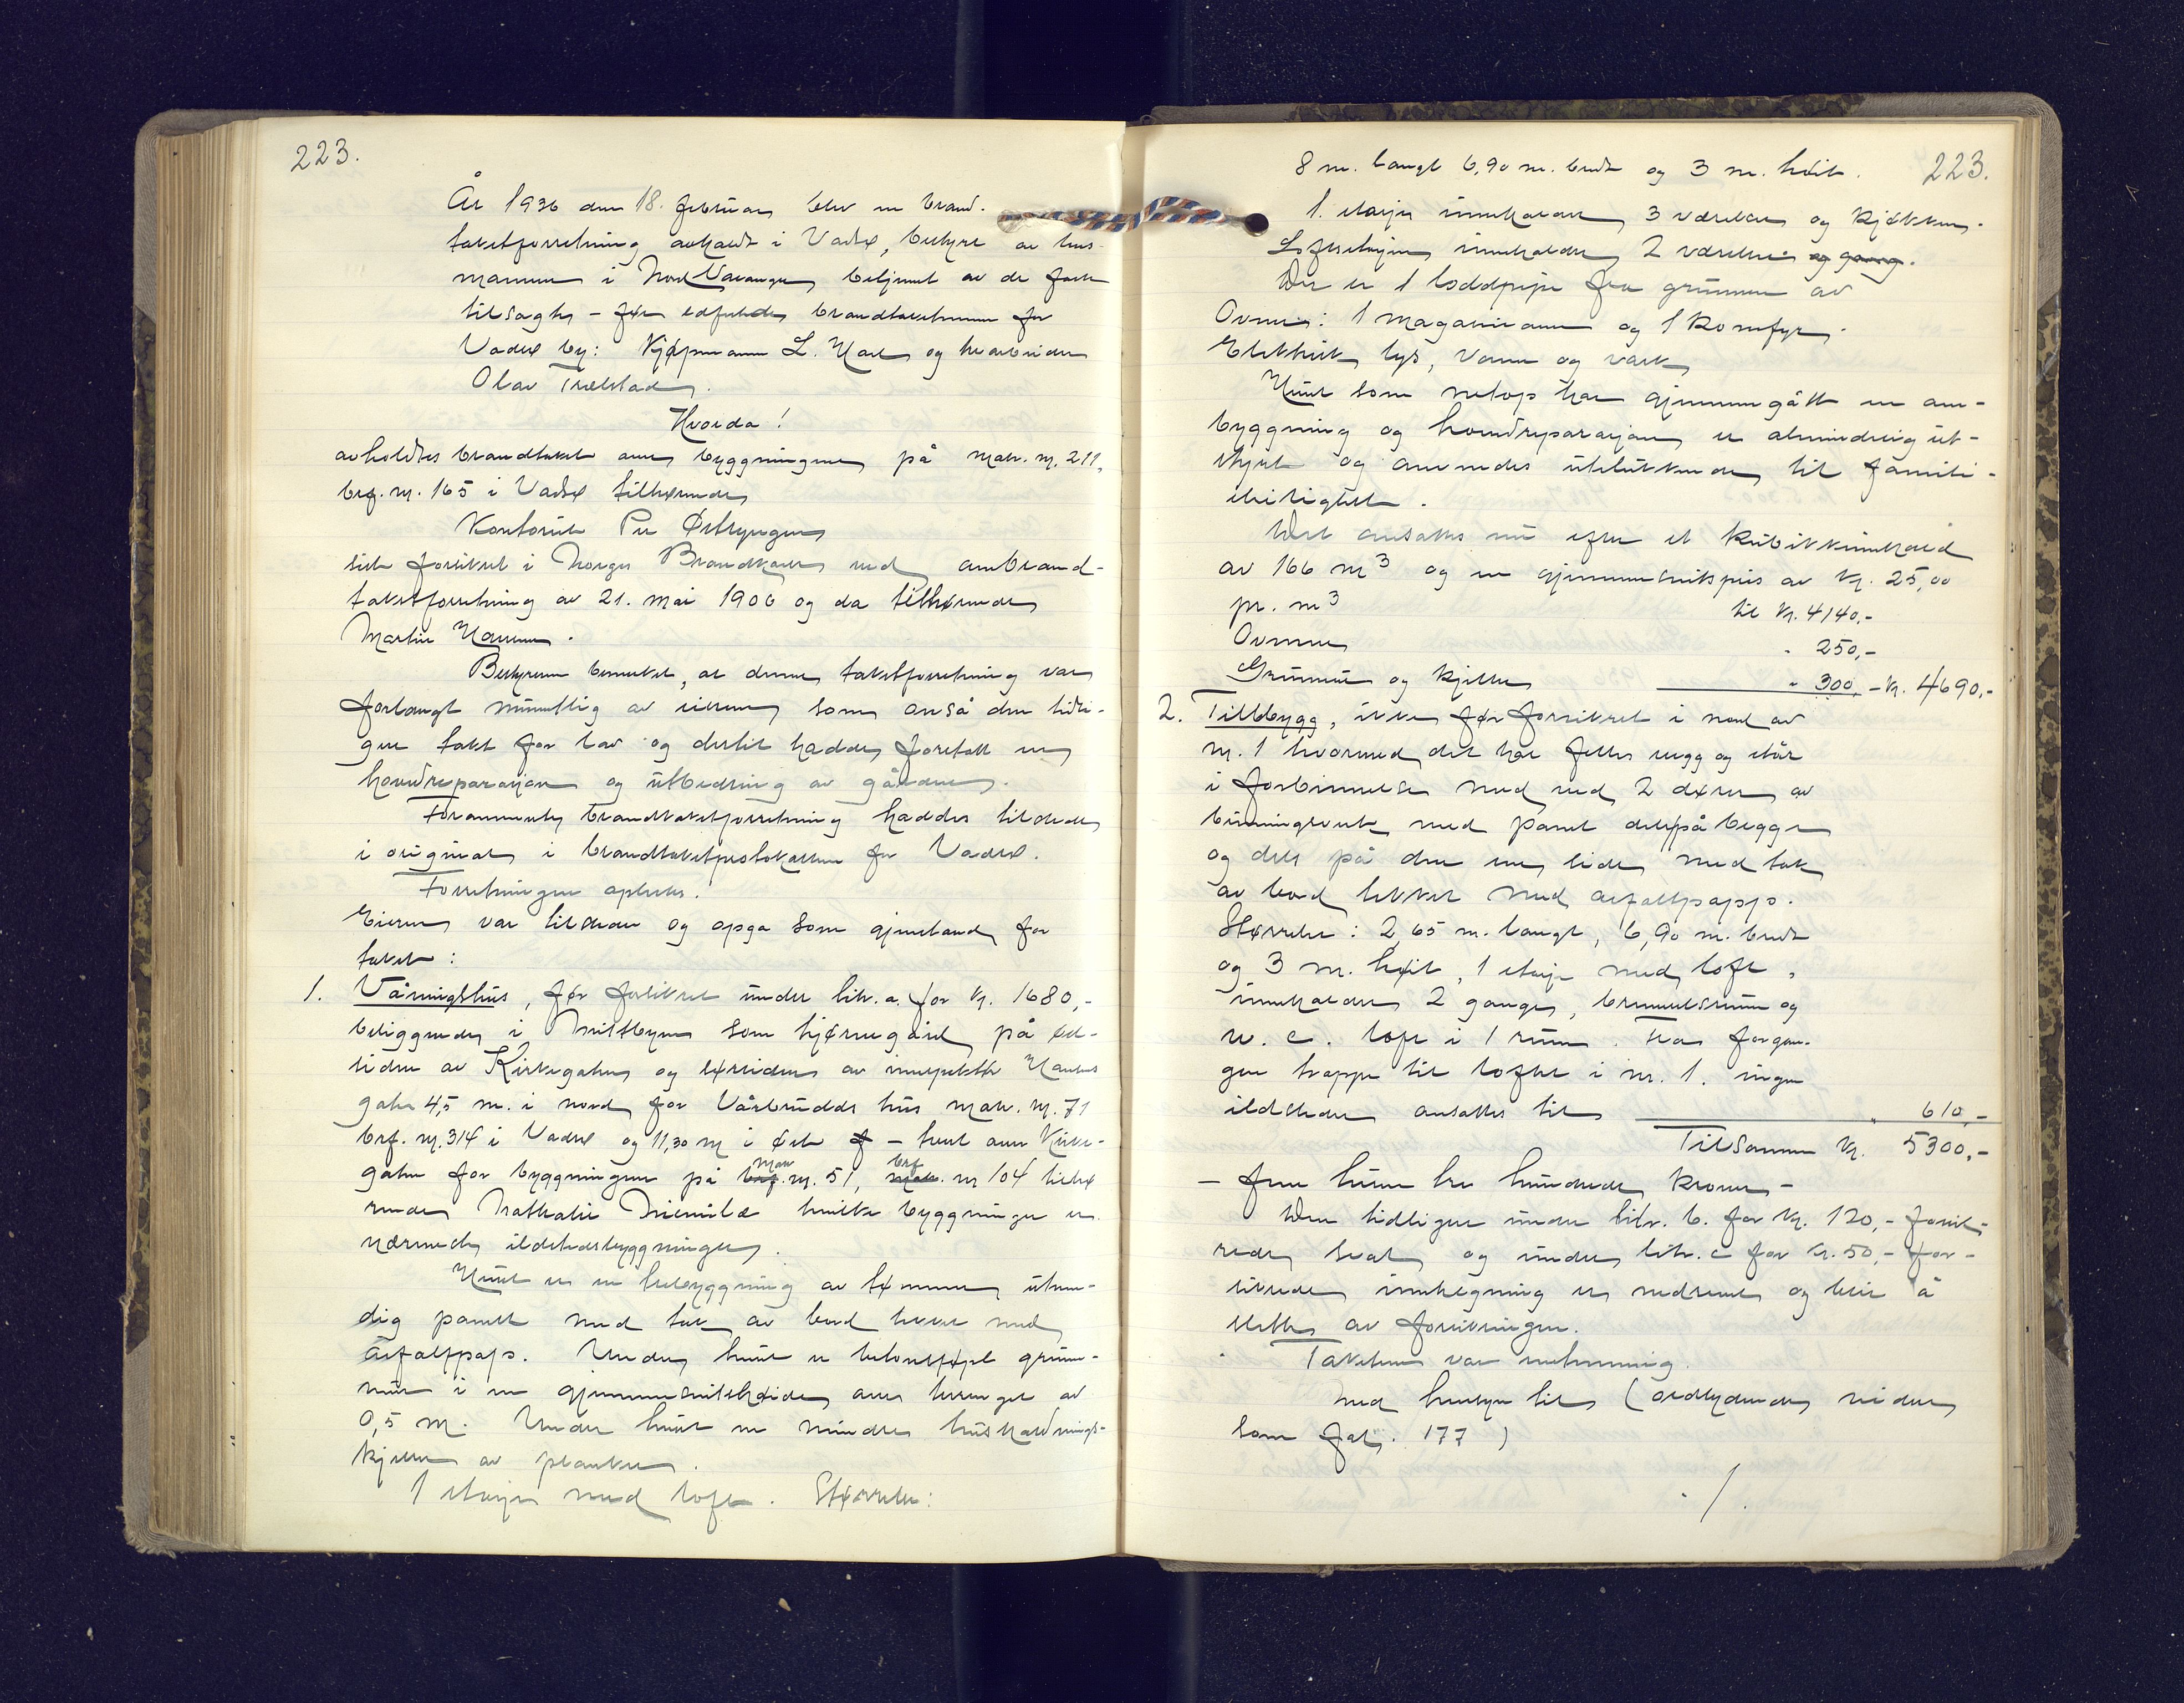 223.
År 1936 den 18. februar blev en brand-
takstforretning avholdt i Vadsø, bestyrt av lens-
mannen i Nord Varanger betjent av de fast
tilsagte - før edfestede brandtakstmenn for
Vadsø by: Kjøpmann L. og
Olav Trælstad.
Hvorda!
avholdtes brandtakst over bygningene på matr. nr. 211,
brf. nr. 165 i Vadsø tilhørende
Kontorist Per Østlyngen
sist forsikret i Norges Brandkasse ved ombrand-
takstforretning av 21. mai 1906 og da tilhørende
Martin Hansen.
Bestyreren bemerket, at denne takstforretning var
forlangt muntlig av eieren som anså den tidli-
gere takst for lav og dertil hadde foretatt en
hovedreparasjon og utbedring av gården.
Forannevnte brandtakstforretning haddes tilstede
i original i brandtakstprotokollen for Vadsø.
Forretningen oplestes.
Eieren var tilstede og opga som gjenstand for
takst:
1. Våningshus, før forsikret under litr. a. for kr. 1680,-
beliggende i Midtbyen som hjørnegård på øst-
siden av Kirkegaten og sørsiden av inspektør Hansens
gate 4,5 m. i nord for Vårbrudds hus matr. nr. 71
brf. nr. 314 i Vadsø og 11,30 m i øst f - tvert over Kirke-
gaten for bygningene på brf. matr nr. 51, matr. brf nr 104 tilhø
rende Nathalie Niemilæ hvilke bygninger er
nærmeste ildstedsbygninger.
Huset er en trebygning av tømmer, utven-
dig panelt med tak av bord tekket med
asfaltpapp. Under huset er betonstøpt grunn-
mur i en gjennemsnitshøide over terrenget av
0,5 m. Under huset en mindre husholdnings-
kjeller av planker.
1 etasje med loft. Størrelse:
223.
8 m. langt 6,90 m. bredt og 3 m. høit.
1. etasje inneholder 3 værelser og kjøkken.
Loftsetasjen inneholder 2 værelser og gang.
Der er 1 loddpipe fra grunnen av
Ovner: 1 magasinovn og 1 komfyr.
Elektrisk lys, vann og vask
Huset som netop har gjennemgått en om-
bygning og hovedreparasjon er almindelig ut-
styrt og anvendes utelukkende til famili-
eleilighet.
Det ansattes nu efter et kubikkinnhold
av 166 m³ og en gjennemsnitspris av kr. 25,00
pr. m³ til kr. 4140.-
Ovnene " 250,-
Grunnmur og kjeller " 300,- kr. 4690,-
2. Tilbygg, ikke før forsikret i nord av
nr. 1 hvormed det har felles vegg og står
i forbinnelse med ved 2 dører av
binningsverk med panel dels på begge
og dels på den ene side med tak
av bord tekket med asfaltpapp.
Størrelse: 2,65 m. langt, 6,90 m. bredt
og 3 m. høit, 1 etasje med loft,
inneholder 2 ganger, brenselsrum og
w. c. loft i 1 rum. Fra forgan-
gen trappe til loftet i nr. 1. ingen
ildsteder ansattes til " 610,-
Tilsammen kr. 5300,-
- fem tusen tre hundrede kroner -
Den tidligere under litr. b. for kr. 120,- forsik-
rede skal og under litr. c for kr. 50,- for-
sikrede innhegning er nedrevet og blir å
slette av forsikringen.
Taksten var enstemmig.
Med hensyn til (ordlydende videre
som fol. 177)
./.